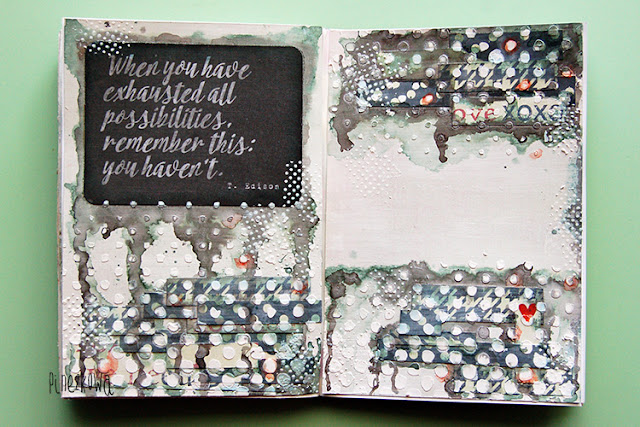 When you have
exhausted all
possibilities,
remember this:
you haven't.
T. Edison
ove XOXO
pineskowa